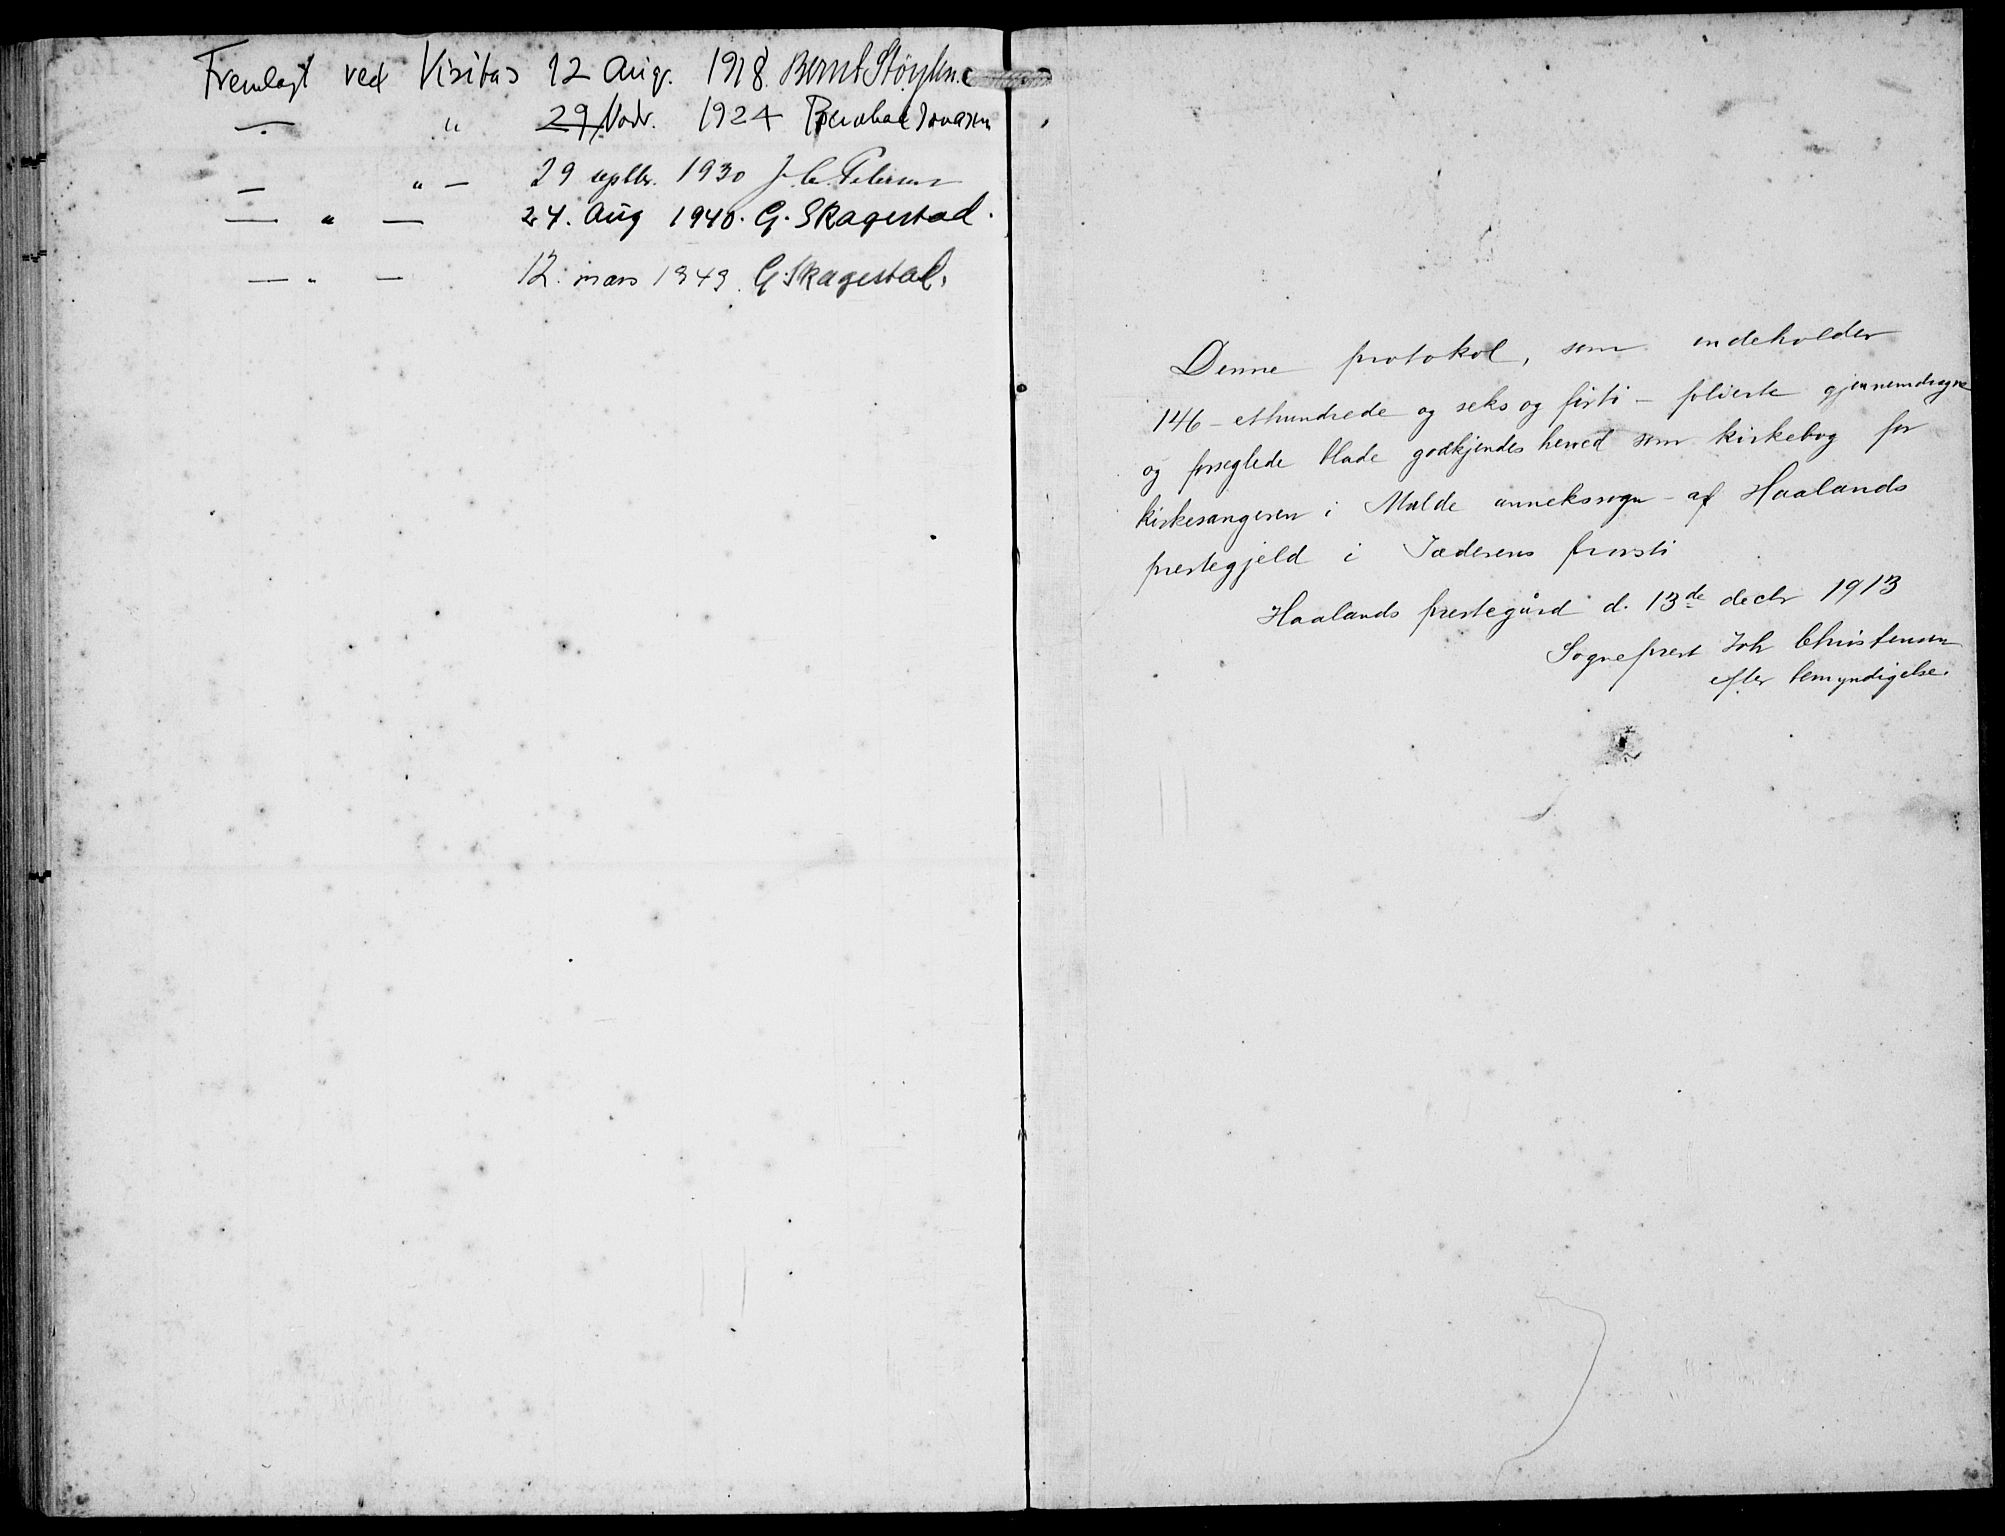 Fremlagt ved Visitas 12 Aug. 1918. Bernt Støylen.
— " 29/ Novbr. 1924
— " — 29 septbr. 1930 J. C. Petersen
— " — 24. Aug 1940. G. Skagestad.
— " — 12. mars 1949. G. Skagestad.
Denne protokol, som indeholder
146 – ethundrede og seks og førti – folierte gjennemdragne
og forseglede blade godkjendes herved som kirkebog for
kirkesangeren i Malde annekssogn – af Haalands
prestegjeld i Jæderens provsti
Haalands prestegård d. 13de decbr 1913
Sogneprest Joh Christensen
efter bemyndigelse.